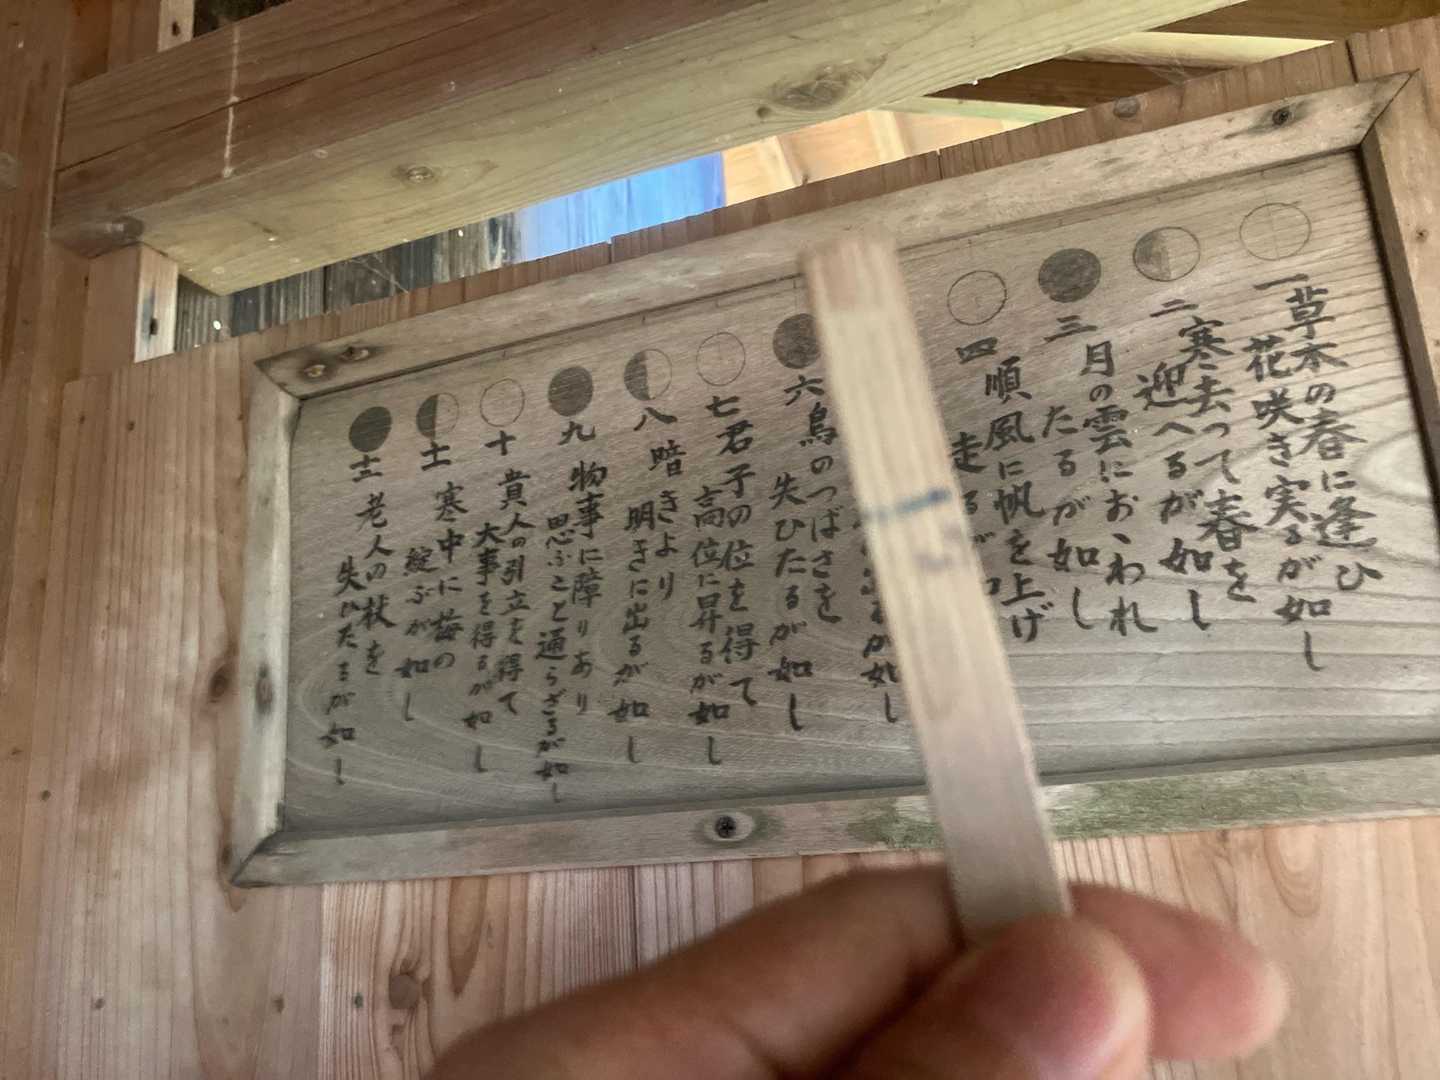 一 草木の春に逢ひ
花咲き実るが如し
二 寒去って春を
迎へるが如し
三 月の雲におゝわれ
たるが如し
四 順風に帆を上げ
走るが
るが如し
六 鳥のつばさを
失ひたるが如し
七 君子の位を得て
高位に昇るが如し
八 暗きより
明きに出るが如し
九 物事に障りあり
思ふこと通らざるが如し
十 貴人の引立を得て
大事を得るが如し
十一 寒中に梅の
綻ぶが如し
十二 老人の杖を
失ひたるが如し